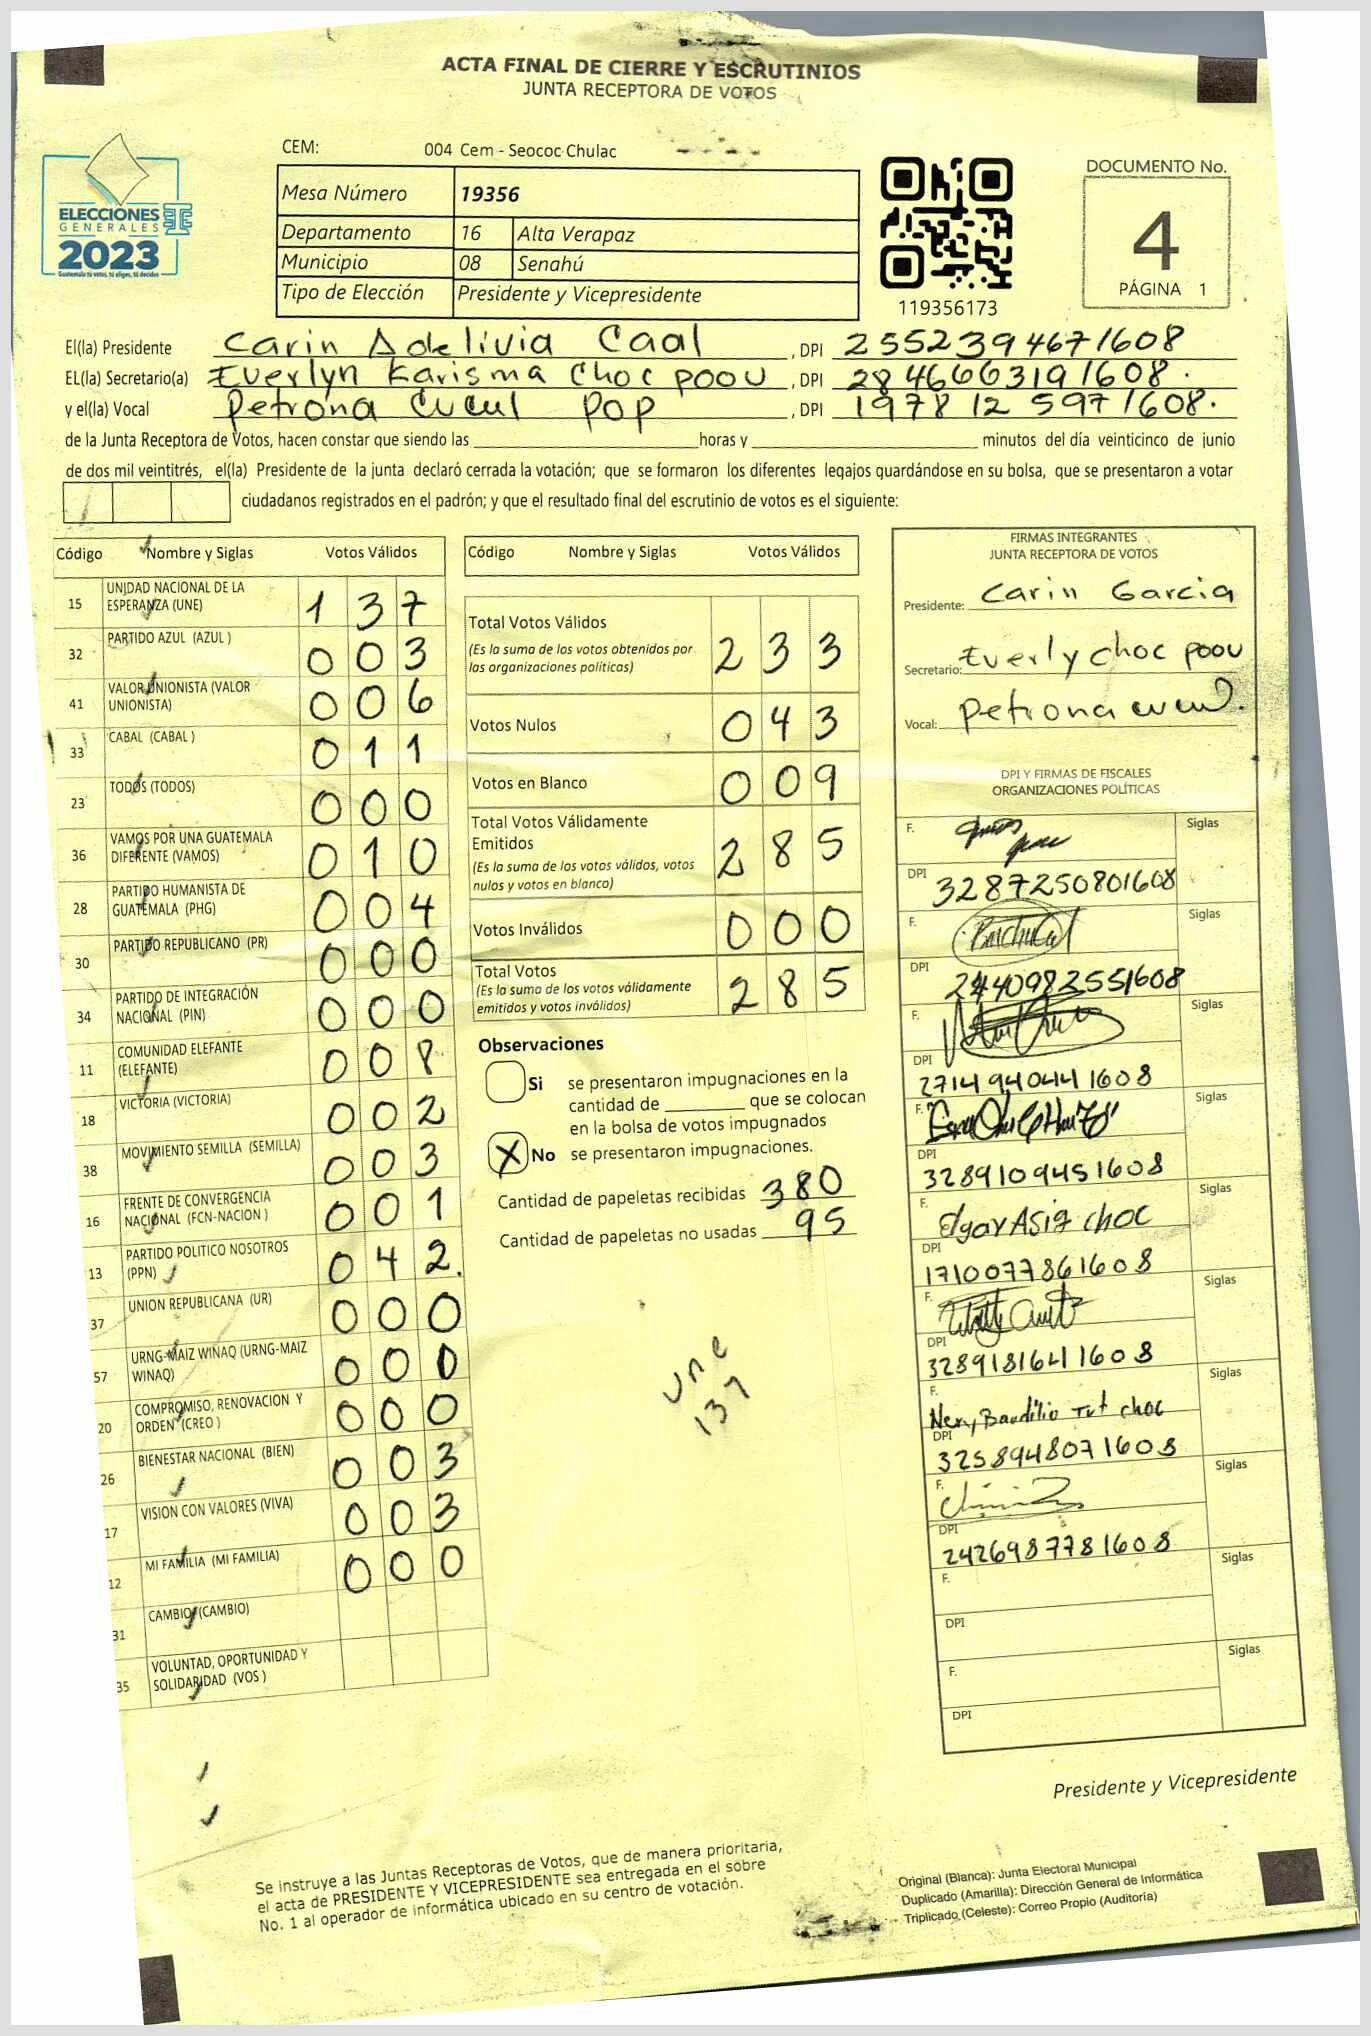 ACTA FINAL DE CIERRE Y ESCRUTINIOS
JUNTA RECEPTORA DE VOTOS
ELECCIONES
GENERALES
2023
Guatemala tú votas, tú eliges, tú decides
CEM: 004 Cem - Seococ Chulac
Mesa Número 19356
Departamento 16 Alta Verapaz
Municipio 08 Senahú
Tipo de Elección Presidente y Vicepresidente
119356173
DOCUMENTO No.
4
PÁGINA 1
El(la) Presidente Carin Adelivia Caal , DPI 2552394671608
EL(la) Secretario(a) Everlyn Karisma Choc poou , DPI 2846663191608.
y el(la) Vocal Petrona Cucul pop , DPI 1978 12 597 1608.
de la Junta Receptora de Votos, hacen constar que siendo las horas y minutos del día veinticinco de junio
de dos mil veintitrés, el(la) Presidente de la junta declaró cerrada la votación; que se formaron los diferentes legajos guardándose en su bolsa, que se presentaron a votar
ciudadanos registrados en el padrón; y que el resultado final del escrutinio de votos es el siguiente:
Código Nombre y Siglas Votos Válidos
15 UNIDAD NACIONAL DE LA ESPERANZA (UNE) 1 3 7
32 PARTIDO AZUL (AZUL ) 0 0 3
41 VALOR UNIONISTA (VALOR UNIONISTA) 0 0 6
33 CABAL (CABAL ) 0 1 1
23 TODOS (TODOS) 0 0 0
36 VAMOS POR UNA GUATEMALA DIFERENTE (VAMOS) 0 1 0
28 PARTIDO HUMANISTA DE GUATEMALA (PHG) 0 0 4
30 PARTIDO REPUBLICANO (PR) 0 0 0
34 PARTIDO DE INTEGRACIÓN NACIONAL (PIN) 0 0 0
11 COMUNIDAD ELEFANTE (ELEFANTE) 0 0 8
18 VICTORIA (VICTORIA) 0 0 2
38 MOVIMIENTO SEMILLA (SEMILLA) 0 0 3
16 FRENTE DE CONVERGENCIA NACIONAL (FCN-NACION ) 0 0 1
13 PARTIDO POLITICO NOSOTROS (PPN) 0 4 2.
37 UNION REPUBLICANA (UR) 0 0 0
57 URNG-MAIZ WINAQ (URNG-MAIZ WINAQ) 0 0 0
20 COMPROMISO, RENOVACION Y ORDEN (CREO ) 0 0 0
26 BIENESTAR NACIONAL (BIEN) 0 0 3
17 VISION CON VALORES (VIVA) 0 0 3
12 MI FAMILIA (MI FAMILIA) 0 0 0
31 CAMBIO (CAMBIO)
35 VOLUNTAD, OPORTUNIDAD Y SOLIDARIDAD (VOS )
Código Nombre y Siglas Votos Válidos
Total Votos Válidos 2 3 3
(Es la suma de los votos obtenidos por
las organizaciones políticas)
Votos Nulos 0 4 3
Votos en Blanco 0 0 9
Total Votos Válidamente
Emitidos 2 8 5
(Es la suma de los votos válidos, votos
nulos y votos en blanco)
Votos Inválidos 0 0 0
Total Votos 2 8 5
(Es la suma de los votos válidamente
emitidos y votos inválidos)
Observaciones
Si se presentaron impugnaciones en la
cantidad de que se colocan
en la bolsa de votos impugnados
X No se presentaron impugnaciones.
Cantidad de papeletas recibidas 380
Cantidad de papeletas no usadas 95
une
137
FIRMAS INTEGRANTES
JUNTA RECEPTORA DE VOTOS
Presidente: Carin Garcia
Secretario: Everly choc poou
Vocal: petrona cucul.
DPI Y FIRMAS DE FISCALES
ORGANIZACIONES POLÍTICAS
F. Siglas
DPI 3287250801608
F. Siglas
DPI 2440982551608
F. Siglas
DPI 2714940441608
F. Siglas
DPI 3289109451608
F. Edgar Asig choc Siglas
DPI 1710077861608
F. Siglas
DPI 3289181641608
F. Nery Baudilio Tut choc Siglas
DPI 3258948071608
F. Siglas
DPI 2426987781608
F. Siglas
DPI
F. Siglas
DPI
Presidente y Vicepresidente
Se instruye a las Juntas Receptoras de Votos, que de manera prioritaria,
el acta de PRESIDENTE Y VICEPRESIDENTE sea entregada en el sobre
No. 1 al operador de informática ubicado en su centro de votación.
Original (Blanca): Junta Electoral Municipal
Duplicado (Amarilla): Dirección General de Informática
Triplicado (Celeste): Correo Propio (Auditoría)